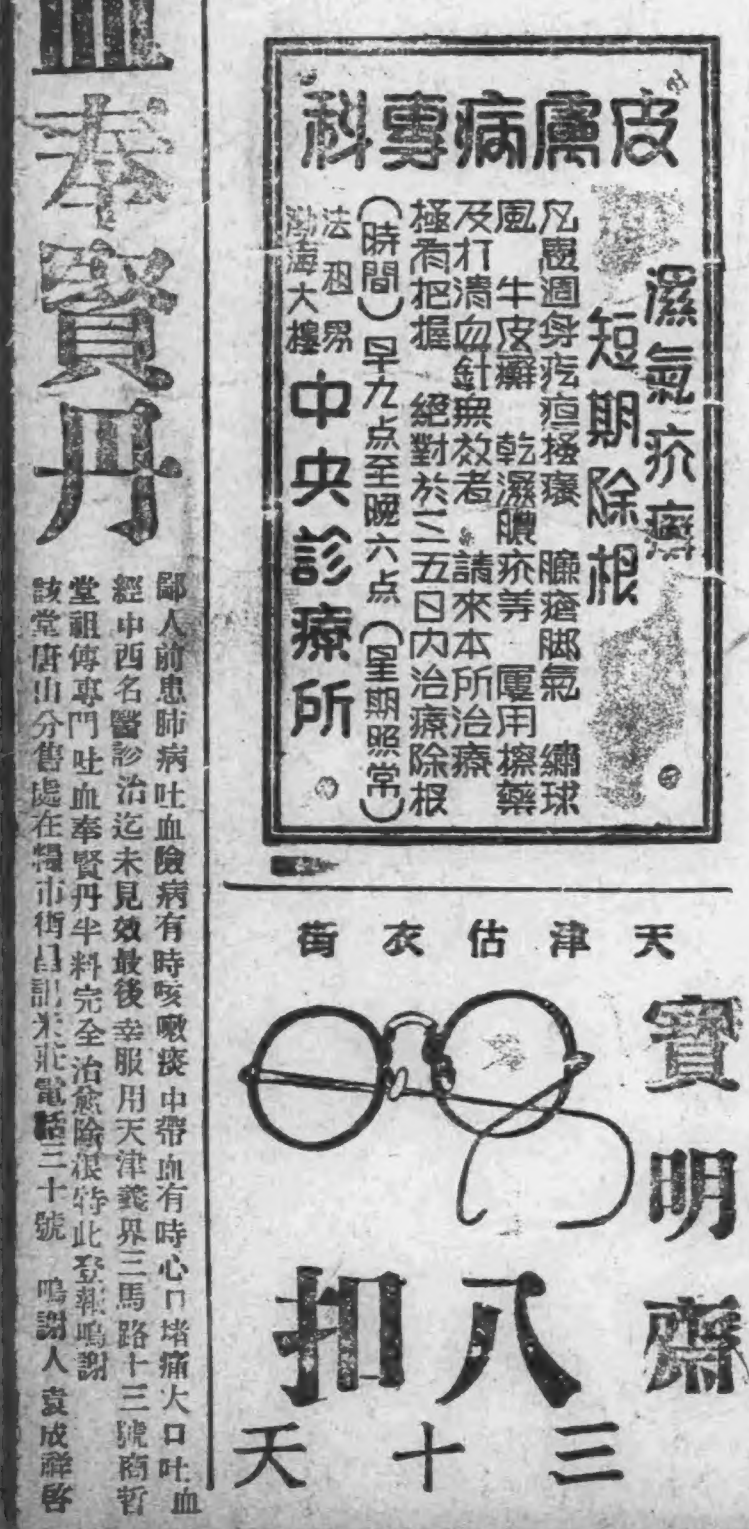 皮膚病專科
濕氣疥癬
短期除根
凡患週身疙瘩搔癢　臁瘡脚氣　繡球
風　牛皮癬　乾濕膿疥等　屢用擦藥
及打清血針無效者　請來本所治療
極有把握　絕對於三五日內治療除根
（時間）早九点至晚六点（星期照常）
法租界
渤海大樓
中央診療所
天津估衣街
寶明齋
八扣
三十天
血奉賢丹
鄙人前患肺病吐血險病有時咳嗽痰中帶血有時心口堵痛大口吐血
經中西名醫診治迄未見效最後幸服用天津義界三馬路十三號商哲
堂祖傳專門吐血奉賢丹半料完全治愈除根特此登報鳴謝
該堂唐山分售處在糧市街昌記米莊電話三十號　鳴謝人袁成祥啓